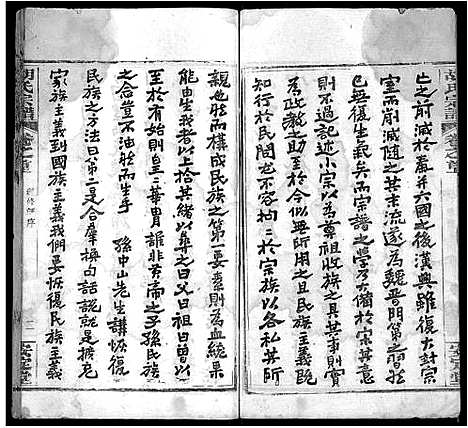 亡之前滅於秦并六國之後漢興雖復大封宗
室而削減隨之其末流遂為魏晉門第之習於
已無復生氣矣而宗譜之學乃大備於宋其意
則不過記述小宗以為尊祖收族具其事則實
為政教之助至於今似無所用之且民族主義既
一於民族行矣又何拘拘於宗族以各私其所
親也然而構成民族之第一要素則為血統果
能由生我者以上拾其緒以尋之曰父曰祖曾以
至於有始則皇皇華胄誰非黃帝之子孫民族
之合豈不油然而生乎 孫中山先生講恢復
民族之方法曰第二是合羣換句話說就是擴充
家族主義到國族主義我們要恢復民族主義
胡氏宗譜
卷之首